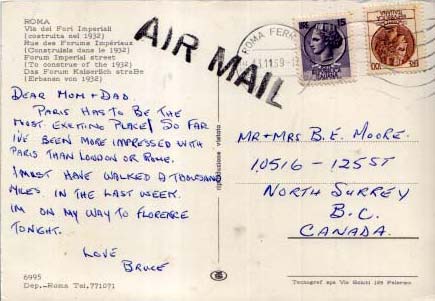 ROMA
Via dei Fori Imperiali
(costruita nel 1932)
Rue des Forums Impériaux
(Construiete dans le 1932)
Forum Imperial street
(To construe of the 1932)
Das Forum Kaiserlich straße
(Erbanen von 1932)
AIR MAIL
ROMA FERR
11.59
LIRE 15
DEAR MOM + DAD.
PARIS HAS TO BE THE
MOST EXCITING PLACE! SO FAR
I'VE BEEN MORE IMPRESSED WITH
PARIS THAN LONDON OR ROME.
I MUST HAVE WALKED A THOUSAND
MILES IN THE LAST WEEK.
IM ON MY WAY TO FLORENCE
TONIGHT.
LOVE
BRUCE
riproduzione vietata
MR + MRS B.E. MOORE.
10516 - 125 ST
NORTH SURREY
B.C.
CANADA.
6995
Dep.-Roma Tel. 771071
Tecnograf spa Via 125 Palermo